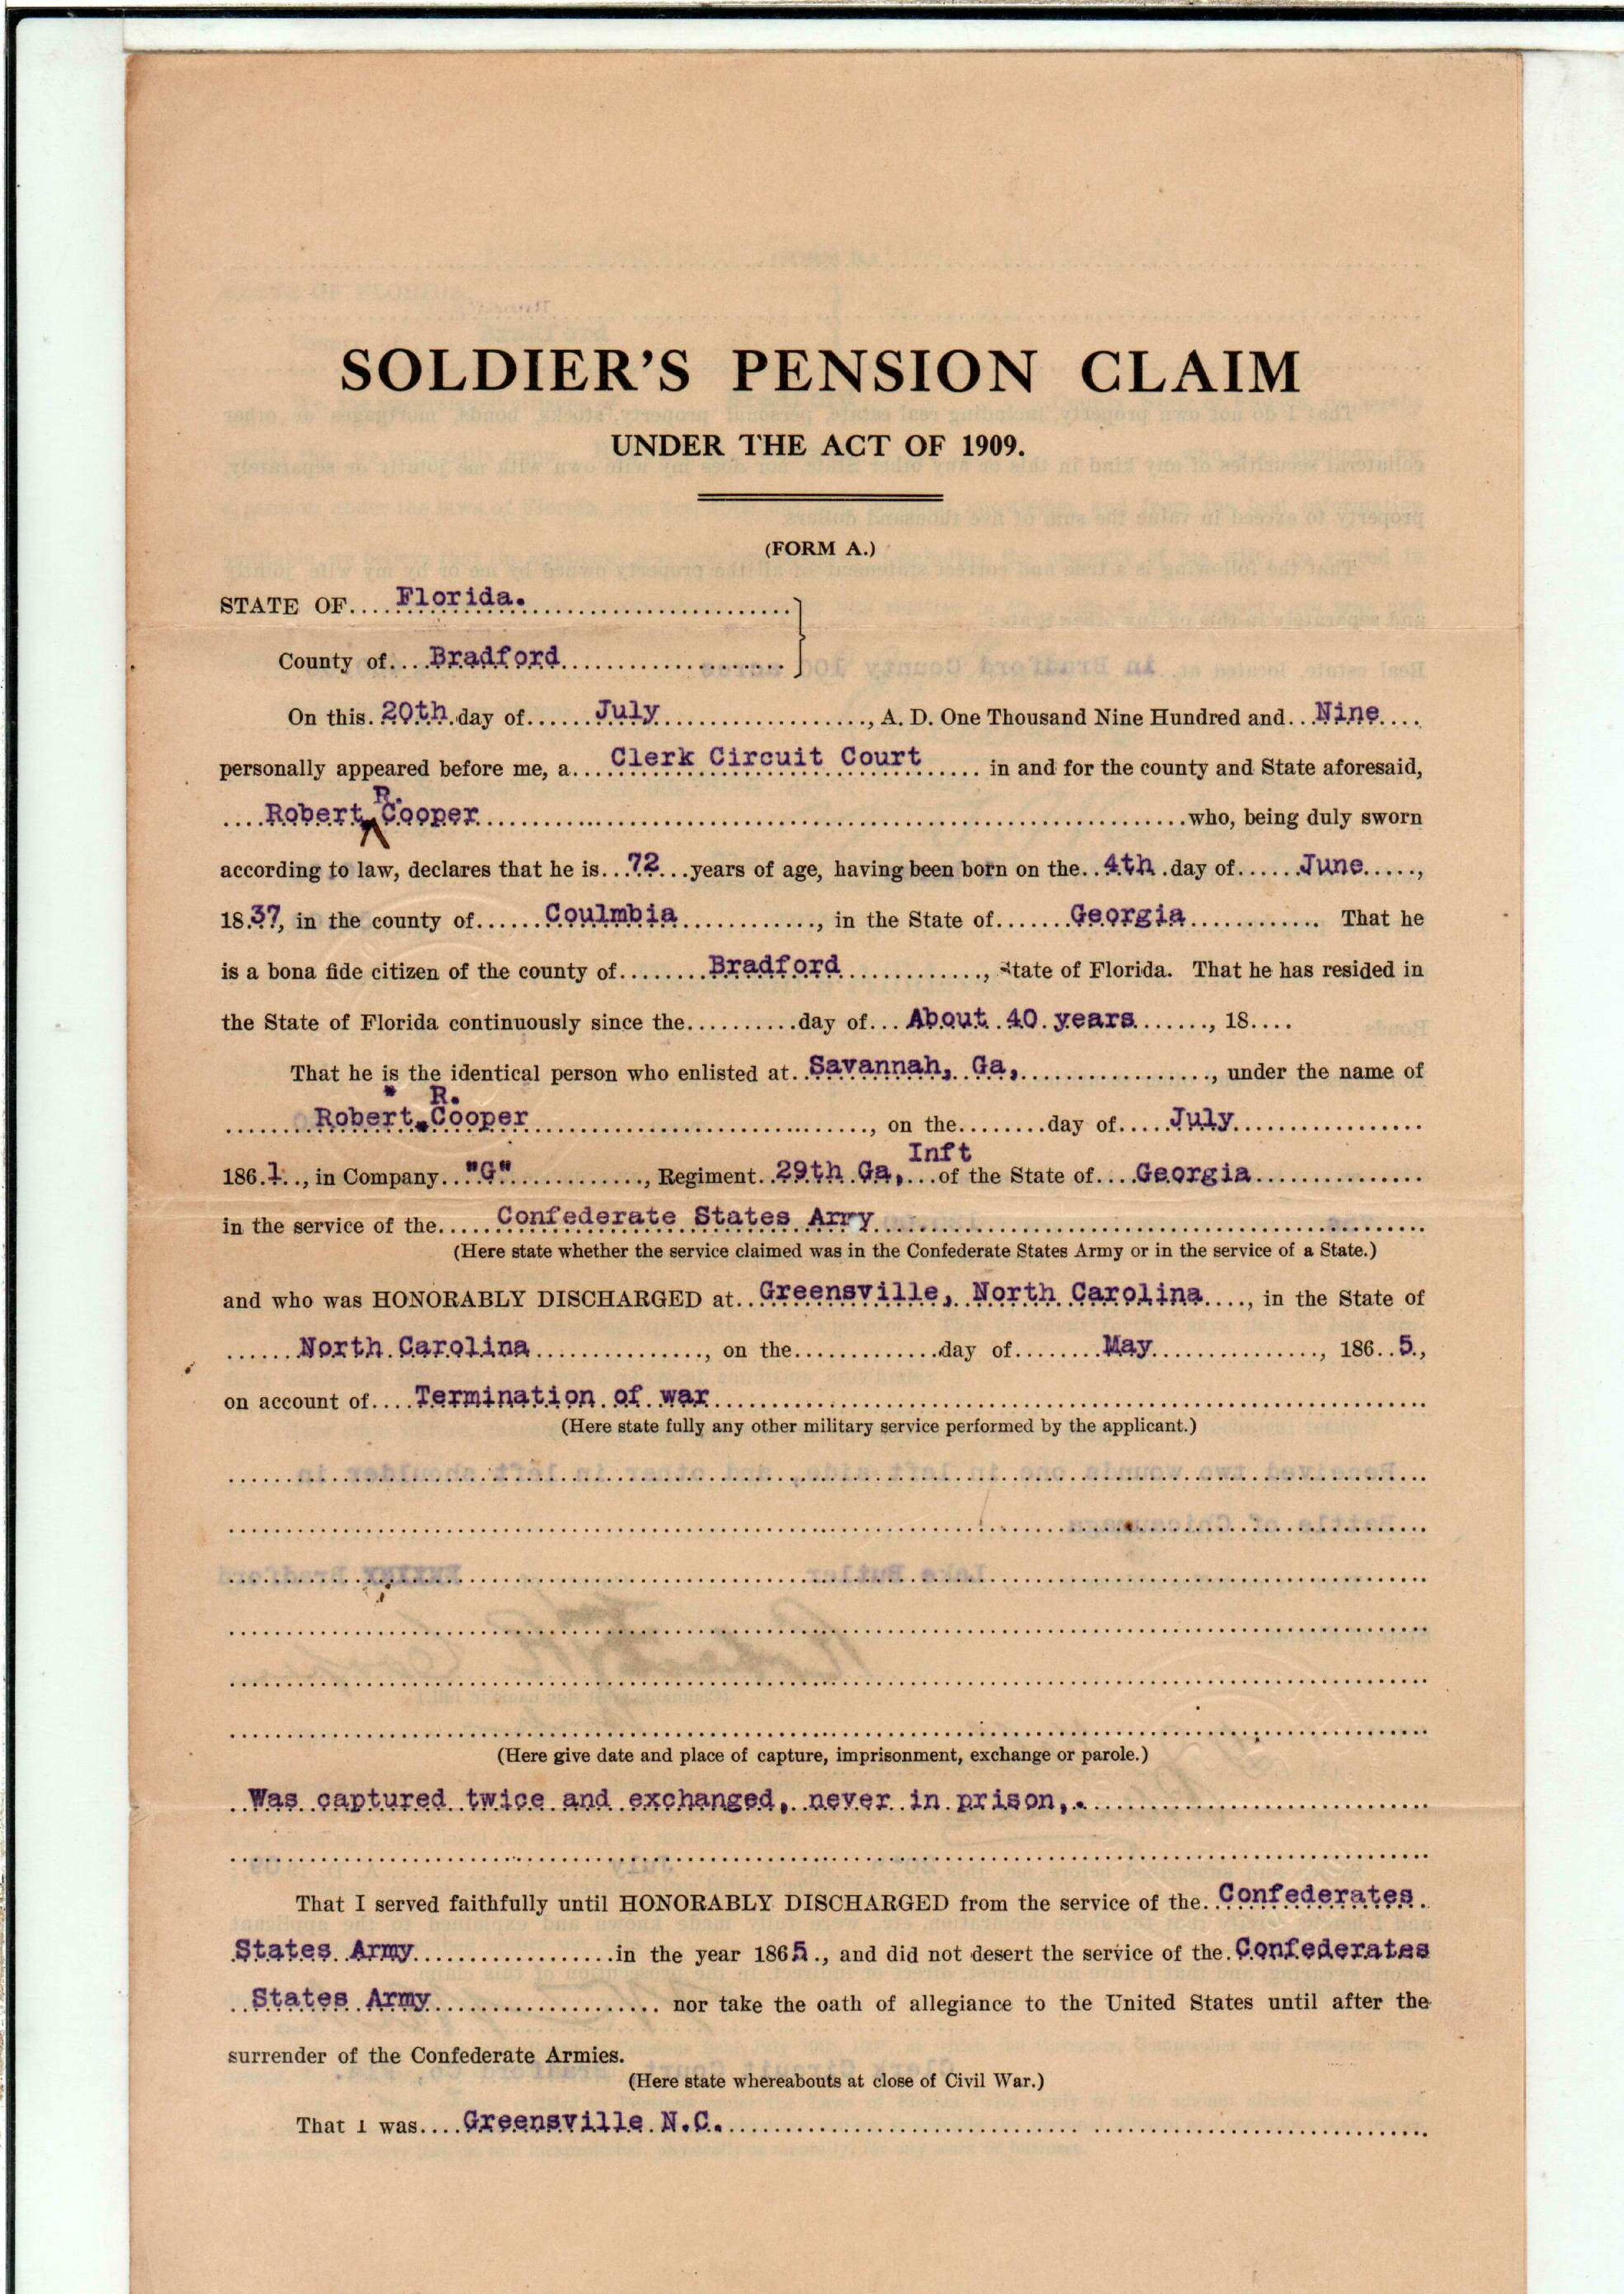 SOLDIER'S PENSION CLAIM
UNDER THE ACT OF 1909.
(FORM A.)
STATE OF....Florida.
County of....Bradford
On this.20th.day of......July..................., A. D. One Thousand Nine Hundred and...Nine....
personally appeared before me, a....Clerk Circuit Court...... in and for the county and State aforesaid,
R.
....Robert Cooper.......who, being duly sworn
according to law, declares that he is...72...years of age, having been born on the..4th.day of......June.....,
18.37, in the county of......Coulmbia............, in the State of.......Georgia............. That he
is a bona fide citizen of the county of........Bradford............., State of Florida. That he has resided in
the State of Florida continuously since the..........day of...About 40 years......., 18....
That he is the identical person who enlisted at..Savannah, Ga,................., under the name of
R.
.......Robert Cooper..............................., on the........day of.....July.................
Inft
186.1.., in Company..."G"............., Regiment..29th Ga,...of the State of....Georgia...............
in the service of the.....Confederate States Arry
(Here state whether the service claimed was in the Confederate States Army or in the service of a State.)
and who was HONORABLY DISCHARGED at..Greensville, North Carolina...., in the State of
......North Carolina..............., on the.............day of........May..............., 186..5.,
on account of....Termination of war
(Here state fully any other military service performed by the applicant.)
(Here give date and place of capture, imprisonment, exchange or parole.)
..Was captured twice and exchanged, never in prison,.
That I served faithfully until HONORABLY DISCHARGED from the service of the..Confederates.
States Army..................in the year 1865., and did not desert the service of the.Confederates
..States Army.................... nor take the oath of allegiance to the United States until after the
surrender of the Confederate Armies.
(Here state whereabouts at close of Civil War.)
That I was....Greensville N.C.